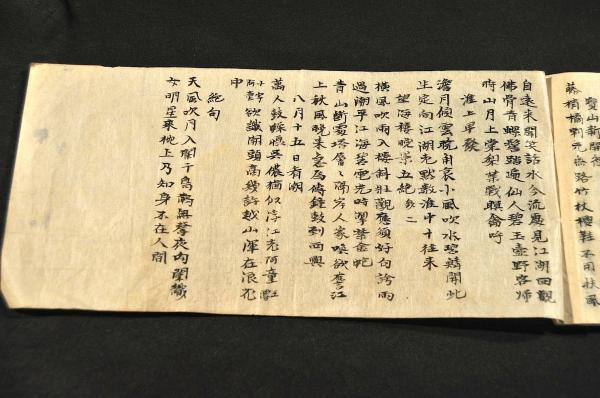 寶山新開徑
藤梢橘刺元無路竹杖椶鞋不用扶風
自遠來聞笑語水分流處見江湖回觀
佛骨青螺髻踏遍仙人碧玉壺野客歸
時山月上棠梨葉戰暝禽呼
淮上早發
澹月傾雲曉角哀小風吹水碧鱗開此
生定向江湖老默數淮中十往來
望海樓晚景五絕之二
橫風吹雨入樓斜壯觀應須好句誇雨
過潮平江海碧電光時掣紫金蛇
青山斷處塔層層隔岸人家喚欲譍江
上秋風晚來急為傳鐘鼓到西興
八月十五日看潮
萬人鼓譟懾吳儂猶似浮江老阿童
欲識潮頭高幾許越山渾在浪花
中
絕句
天風吹月入闌干烏鵲無聲夜向闌織
女明星來枕上乃知身不在人間